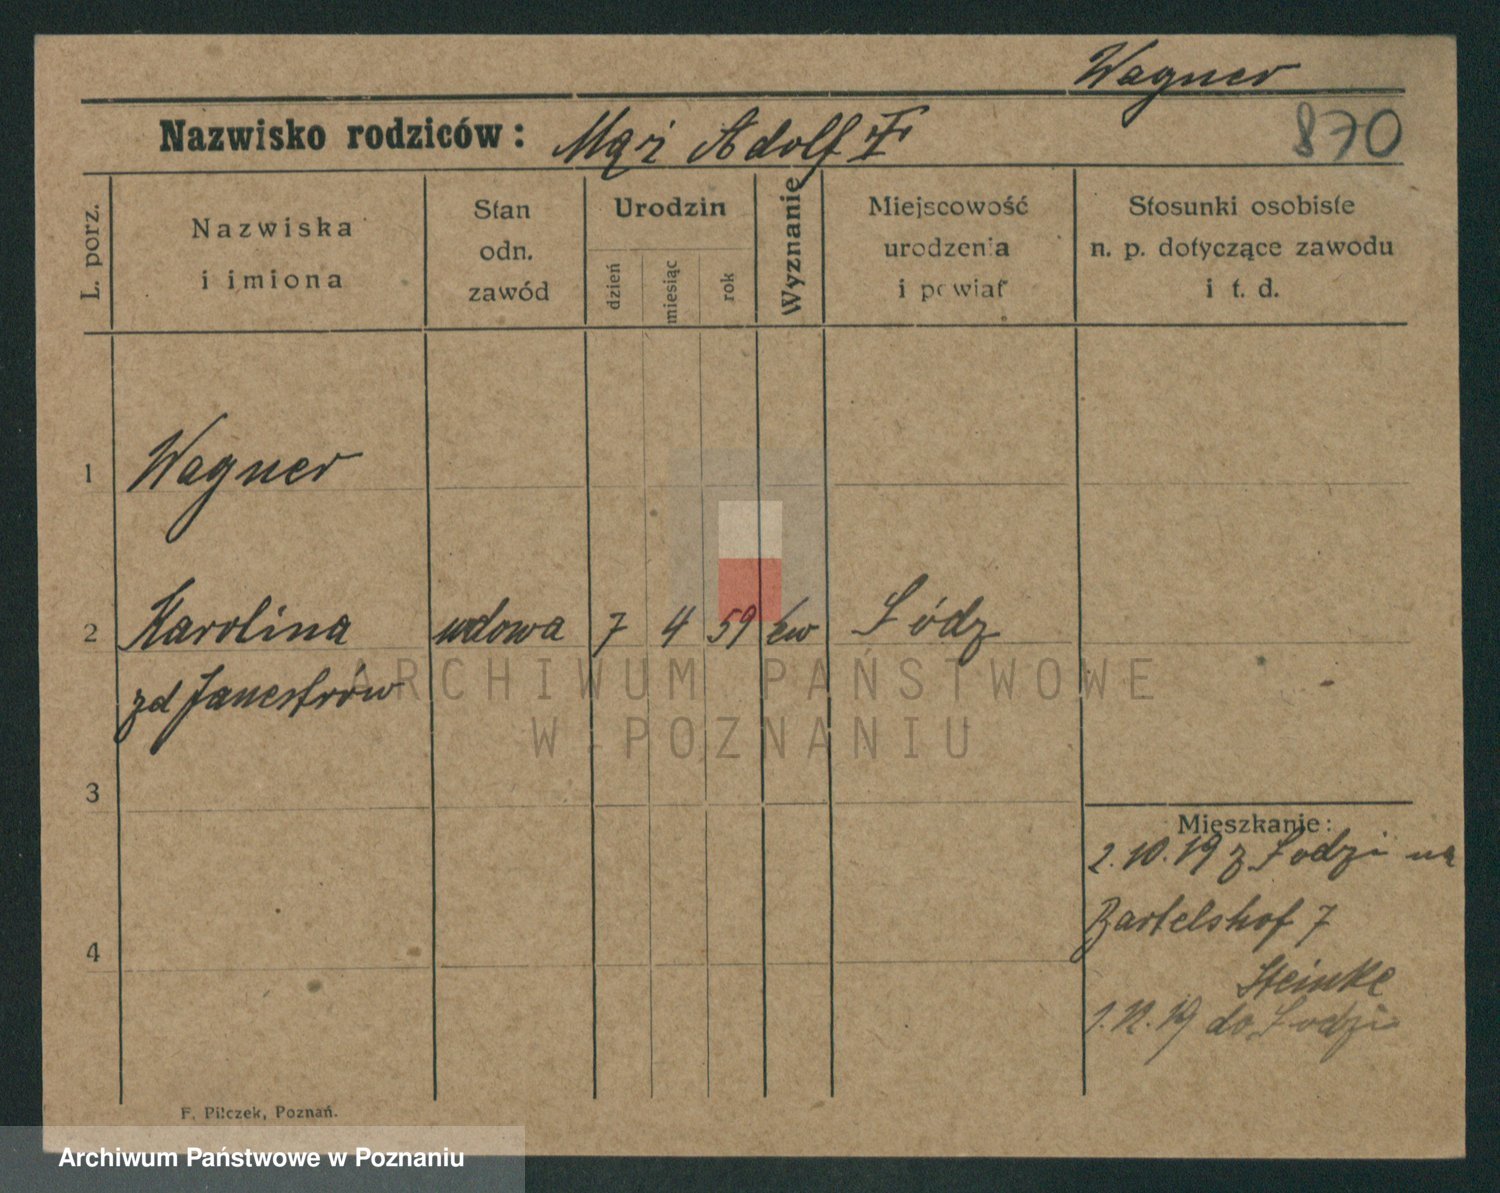 Wagner
Nazwisko rodziców: Mąż Adolf †
870
L. porz.
Nazwiska
i imiona
Stan
odn.
zawód
Urodzin
dzień
miesiąc
rok
Wyznanie
Miejscowość
urodzenia
i powiat
Stosunki osobiste
n. p. dotyczące zawodu
i t. d.
1 Wagner
2 Karolina wdowa 7 4 59 ew Łódz
zd
3
4
Mieszkanie:
2.10.19 z Łodzi na
Bartelshof 7
Steinke
do Łodzi
F. Pilczek, Poznań.
ARCHIWUM PAŃSTWOWE
W POZNANIU
Archiwum Państwowe w Poznaniu